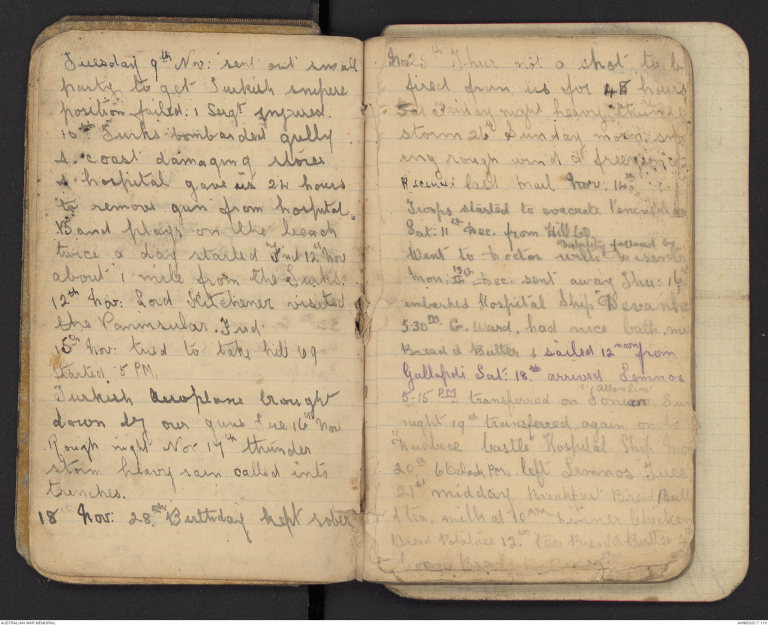 Tuesday 9th Nov: sent out small
party to get Turkish snipers
position failed. 1 Sergt injured.
10th Turks bombarded gully
& coast damaging stores
& hospital gave us 24 hours
to remove gun from hospital.
Band plays on the beach
twice a day started Frid 12th Nov
about 1 mile from the Turks.
12th Nov: Lord Kitchener visited
the Peninsular. Frid
15th Nov: tried to take hill 69
Started 5 PM.
Turkish Aeroplane brought
down by our guns Tue 16th Nov
Rough night Nov 17th thunder
storm heavy rain called into
trenches.
18 Nov: 28th Birthday kept sober
25th Thur not a shot to b
fired from us for 48 hours
Friday night heavy thunder
storm 26th Sunday morn: snow
ing rough wind & freezing
Received last mail Nov. 14th
Troops started to evacuate Peninsular
Sat. 11th Dec. from Hill 60
Went to doctor with
Mon: 13th Dec: sent away Thu: 16
embarked Hospital Ship Devanha
530 PM C. Ward. had nice bath,
Bread & Butter & sailed 12 noon from
Gallapoli Sat. 18th arrived Lemnos
5-15 PM transferred on Sun
night 19th transferred again on
Castle" Hospital Ship
20th 6 O'clock PM. left Lemnos Tues
21st midday Breakfast Bread Butt
& tea. milk at 10 AM dinner Chicken
Bread Potatoes 12. tea Bread & Butter